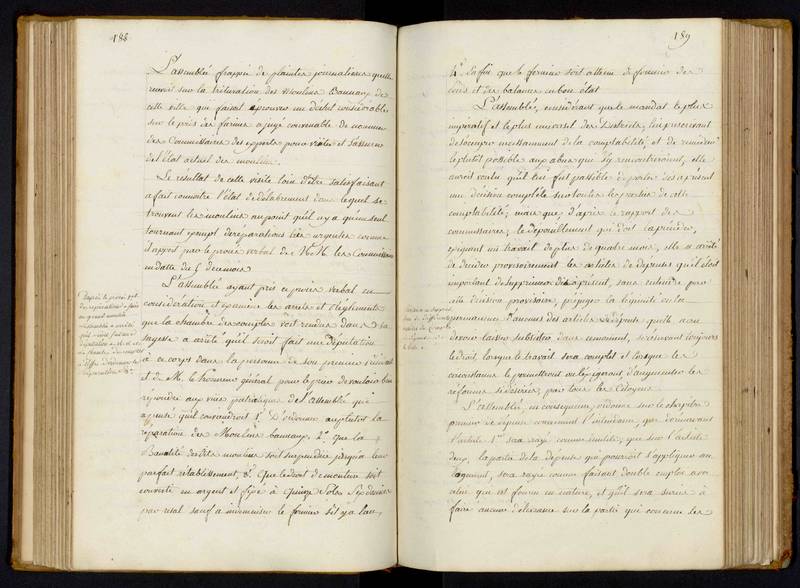 188
L'assemblée frappée de plaintes journalieres qu'elle
recevoit sur la trituration des Moulins Bannaux de
cette ville qui faisait éprouver un déchet considérable
sur le poids des farines a jugé convenable de nommer
des Commissaires des experts pour visiter et s'assurer
de l'état actuel des moulins.
Le résultat de cette visite loin d'être satisfaisant
a fait connoitre l'état de délabrement dans lequel se
trouvent les moulins au point qu'il n'y a qu'un seul
tournant exempt de réparations très urgentes comme
il appert par le procès verbal de MM. les Commissaires
en datte du 5 de ce mois
L'assemblée ayant pris ce procès verbal en
considération et examiné les arrêts et Réglements
que la chambre des comptes doit rendre dans sa
sagesse a arrêté qu'il seroit fait une députation
à ce corps dans la personne de son premier président
et de M. le Procureur général pour le prier de vouloir bien
répondre aux vües patriotiques de l'assemblée qui
a pensé qu'il conviendroit 1°. D'ordonner au plutot la
réparation des Moulins bannaux. 2°. que la
Banalité desdits moulins soit suspendue jusqu'à leur
parfait rétablissement, 3°. Que le droit de mouture soit
converti en argent et fixé à Quinze Sols Six deniers
par résal sauf à indemniser le fermier s'il y a lieu,
189
4°. Enfin que le fermier soit astreint de fournir des
poids et des balances en bon état
L'Assemblée, considérant que le mandat le plus
impératif et le plus universel des Districts, lui prescrivant
de s'occuper incessamment de la comptabilité et de remédier
le plutôt possible aux abus qui s'y rencontreroient, elle
auroit voulu qu'il lui fut possible de porter dès à présent
une décision complète sur toutes les parties de cette
comptabilité; mais que d'après le rapport des
commissaires, le dépouillement qui doit la précéder,
exigeant un travail de plus de quatre mois, elle a arrêté
de décider provisoirement les articles de dépenses qu'il étoit
important de supprimer dès à présent, sans entendre par
cette décision provisoire, préjuger la légimité ou la
permanence d'aucuns des articles de dépense qu'elle a cru
devoir laisser subsister dans ce moment, se réservant toujours
le droit, lorsque le travail sera complet et lorsque les
circonstances le permettront ou l'exigeront, d'augmenter les
réformes si désirées, par tous les Citoyens.
L'assemblée, en conséquence, ordonne sur le chapitre
premier de dépense concernant l'intendance, que dorénavant
l'article 1er sera rayé comme inutile; que sur l'article
deux, la partie de la dépense qui pourroit s'appliquer au
logement, sera rayée comme faisant double emploi avec
celui qui est fourni en nature, et qu'il sera sursis à
faire aucune délivrance sur la partie qui concerne les